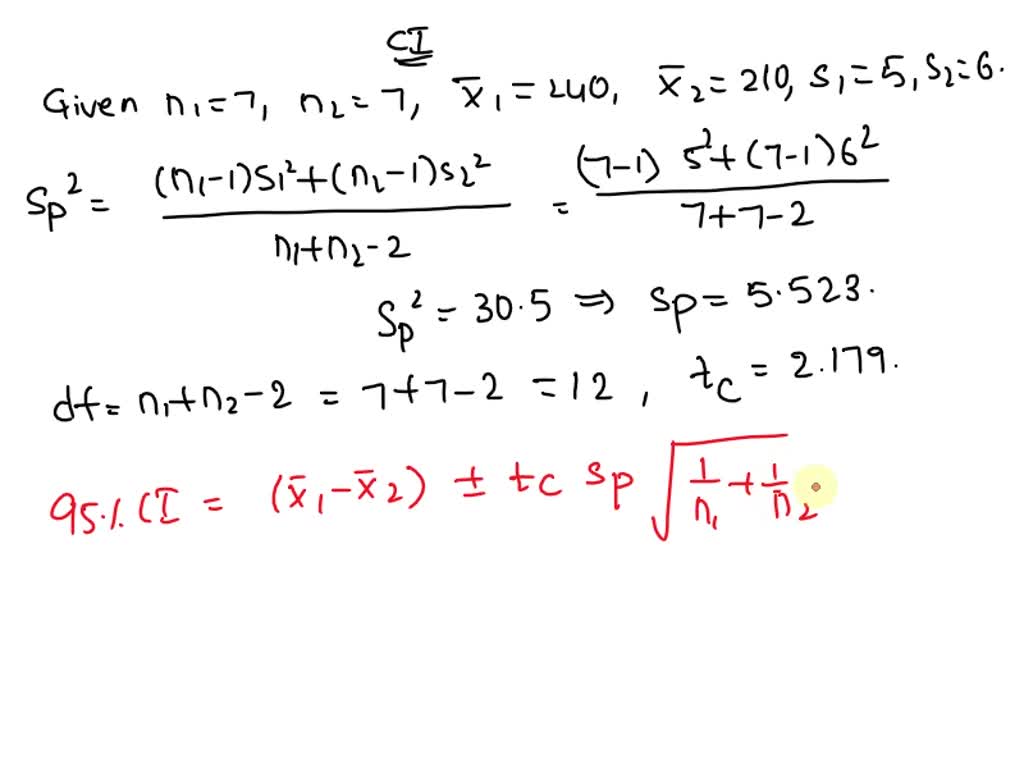 CI
Given n₁=7, n₂=7, x̄₁=240, x̄₂=210, s₁=5, s₂=6.
Sp² = (n₁-1)S₁²+(n₂-1)s₂² / n₁+n₂-2 = (7-1) 5²+(7-1)6² / 7+7-2
Sp² = 30.5 ⇒ Sp = 5.523.
df = n₁+n₂-2 = 7+7-2 = 12, tc = 2.179.
95% CI = (x̄₁-x̄₂) ± tc Sp √(1/n₁+1/n₂)